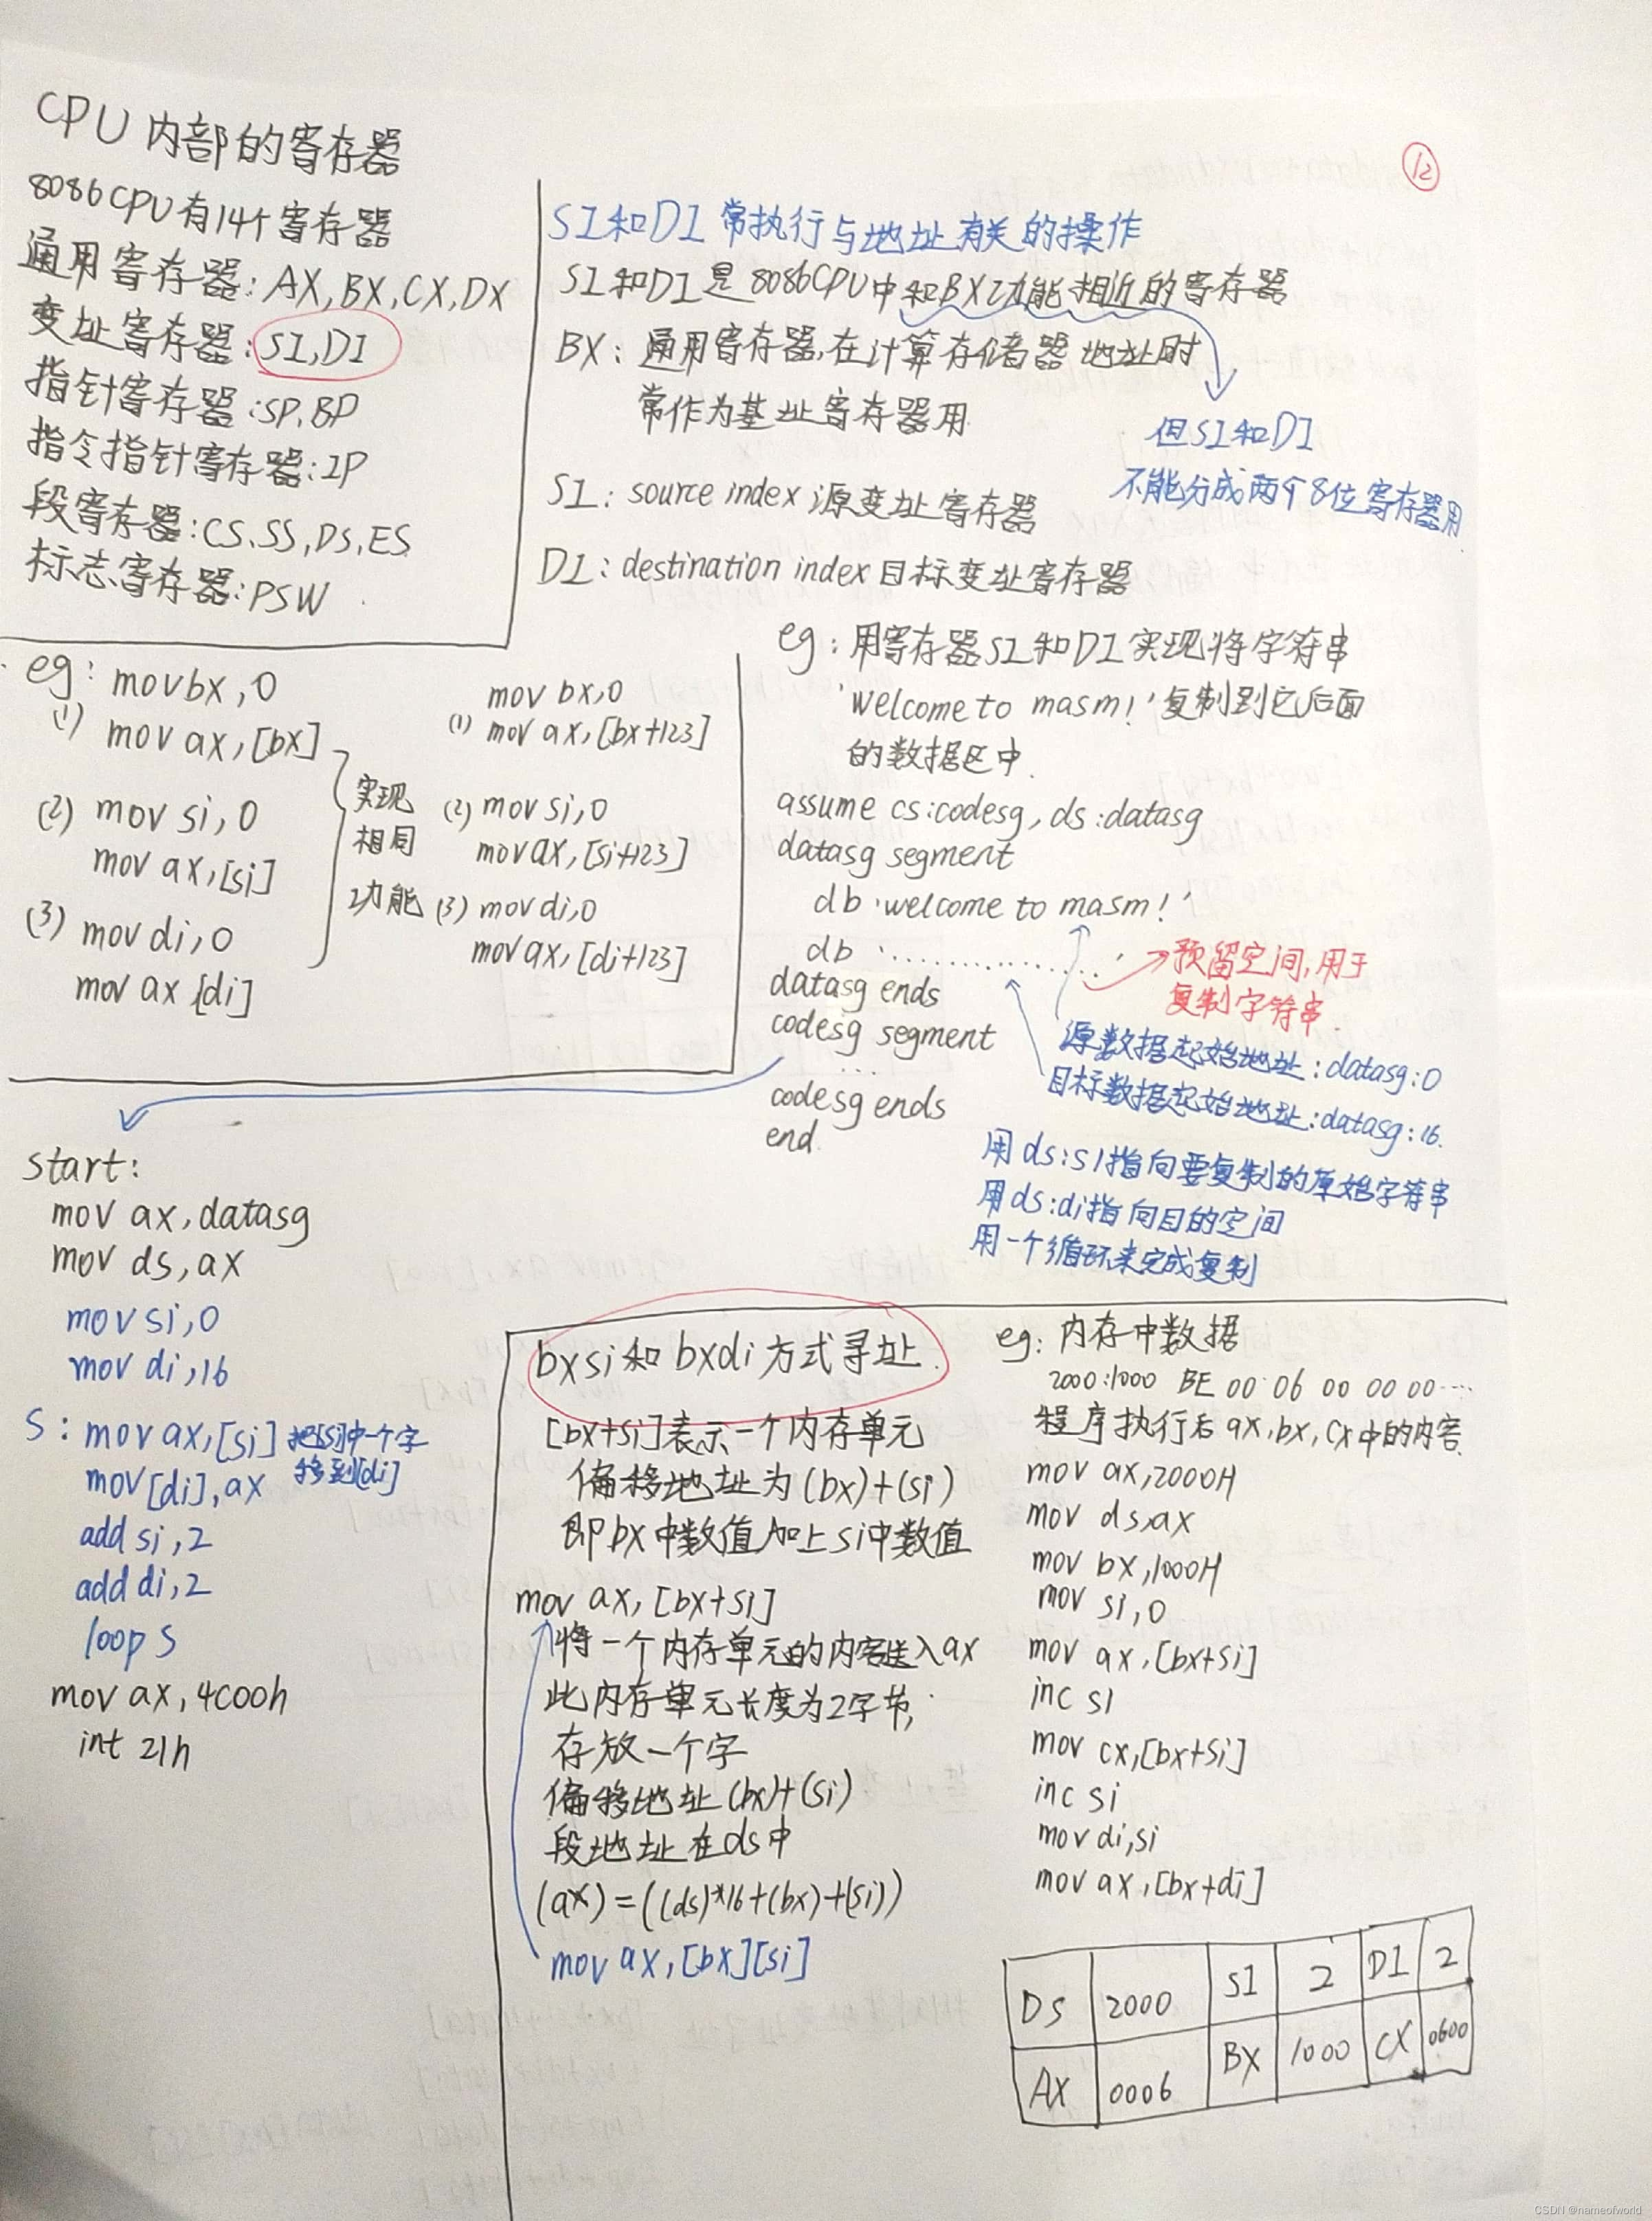 CPU 内部的寄存器
8086CPU有14个寄存器
通用寄存器:AX,BX,CX,DX
变址寄存器:SI,DI
指针寄存器:SP、BP
指令指针寄存器:IP
段寄存器:CS、SS,DS,ES
标志寄存器:PSW
12
SI和DI 常执行与地址有关的操作
SI和DI是8086CPU中和BX功能相近的寄存器
BX:通用寄存器,在计算存储器地址时
常作为基址寄存器用
但SI和DI
不能分成两个8位寄存器用
SI:source index 源变址寄存器
DI:destination index 目标变址寄存器
eg: mov bx,0
(1) mov ax,[bx]
(2) mov si,0
mov ax,[si]
(3) mov di,0
mov ax [di]
实现
相同
功能
mov bx,0
(1) mov ax,[bx+123]
(2) mov si,0
mov ax,[si+123]
(3) mov di,0
mov ax,[di+123]
eg:用寄存器SI和DI实现将字符串
'welcome to masm!'复制到它后面
的数据区中.
assume cs:codesg, ds:datasg
datasg segment
db 'welcome to masm!'
db '................'
datasg ends
codesg segment
...
codesg ends
end
预留空间,用于
复制字符串.
源数据起始地址:datasg:0
目标数据起始地址:datasg:16.
用 ds:si指向要复制的原始字符串
用ds:di指向目的空间
用一个循环来完成复制
start:
mov ax,datasg
mov ds,ax
mov si,0
mov di,16
S: mov ax,[si] 把[si]中一个字
mov [di],ax 移到[di]
add si,2
add di,2
loop s
mov ax,4c00h
int 21h
bxsi和bxdi方式寻址.
[bx+si]表示一个内存单元
偏移地址为(bx)+(si)
即bx中数值加上si中数值
mov ax,[bx+si]
将一个内存单元的内容送入ax
此内存单元长度为2字节,
存放一个字
偏移地址(bx)+(si)
段地址在ds中
(ax)=((ds)*16+(bx)+(si))
mov ax,[bx][si]
eg: 内存中数据
2000:1000 BE 00 06 00 00 00....
程序执行后 ax,bx,cx中的内容.
mov ax,2000H
mov ds,ax
mov bx,1000H
mov si,0
mov ax,[bx+si]
inc si
mov cx,[bx+si]
inc si
mov di,si
mov ax,[bx+di]
DS 2000 SI 2 DI 2
AX 0006 BX 1000 CX 0600
CSDN @nameofworld